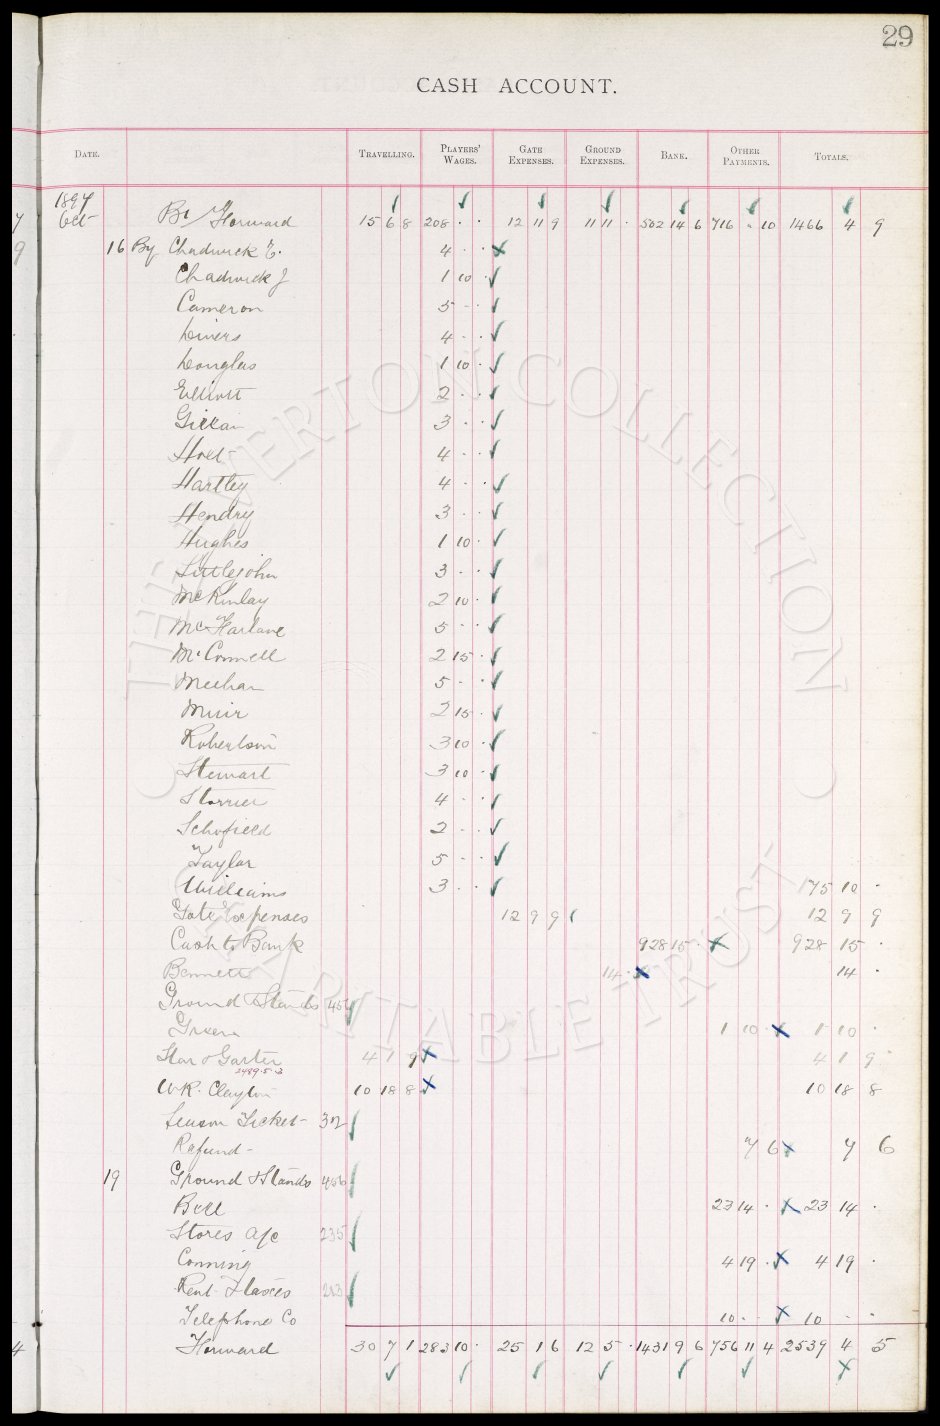 29
CASH ACCOUNT.
DATE. TRAVELLING. PLAYERS' WAGES. GATE EXPENSES. GROUND EXPENSES. BANK. OTHER PAYMENTS. TOTALS.
1897
Oct Bt Forward 15 6 8 208 . . 12 11 9 11 11 . 502 14 6 716 . 10 1466 4 9
16 By Chadwick E. 4 . .
Chadwick J 1 10 .
Cameron 5 . .
Divers 4 . .
Douglas 1 10 .
Elliott 2 . .
Gillan 3 . .
Holt 4 . .
Hartley 4 . .
Hendry 3 . .
Hughes 1 10 .
Littlejohn 3 . .
McKinlay 2 10 .
McFarlane 5 . .
McConnell 2 15 .
Meehan 5 . .
Muir 2 15 .
Robertson 3 10 .
Stewart 3 10 .
Storrier 4 . .
Schofield 2 . .
Taylor 5 . .
Williams 3 . . 75 10 .
Gate Expenses 12 9 9 12 9 9
Cash to Bank 928 15 . 928 15 .
Bennett 14 . 14 .
Ground & Stands 456
Green 1 10 . 1 10 .
Star & Garter 4 1 9 4 1 9
2489.5.3
W.R. Clayton 10 18 8 10 18 8
Season Ticket 312
Refund 7 6 7 6
19 Ground & Stands 456
Bell 23 14 . 23 14 .
Stores a/c 235
Conning 4 19 . 4 19 .
Rent 213
Telephone Co 10 . . 10 . .
Forward 30 7 1 283 10 . 25 1 6 12 5 . 1431 9 6 756 11 4 2539 4 5
THE EVERTON COLLECTION CHARITABLE TRUST